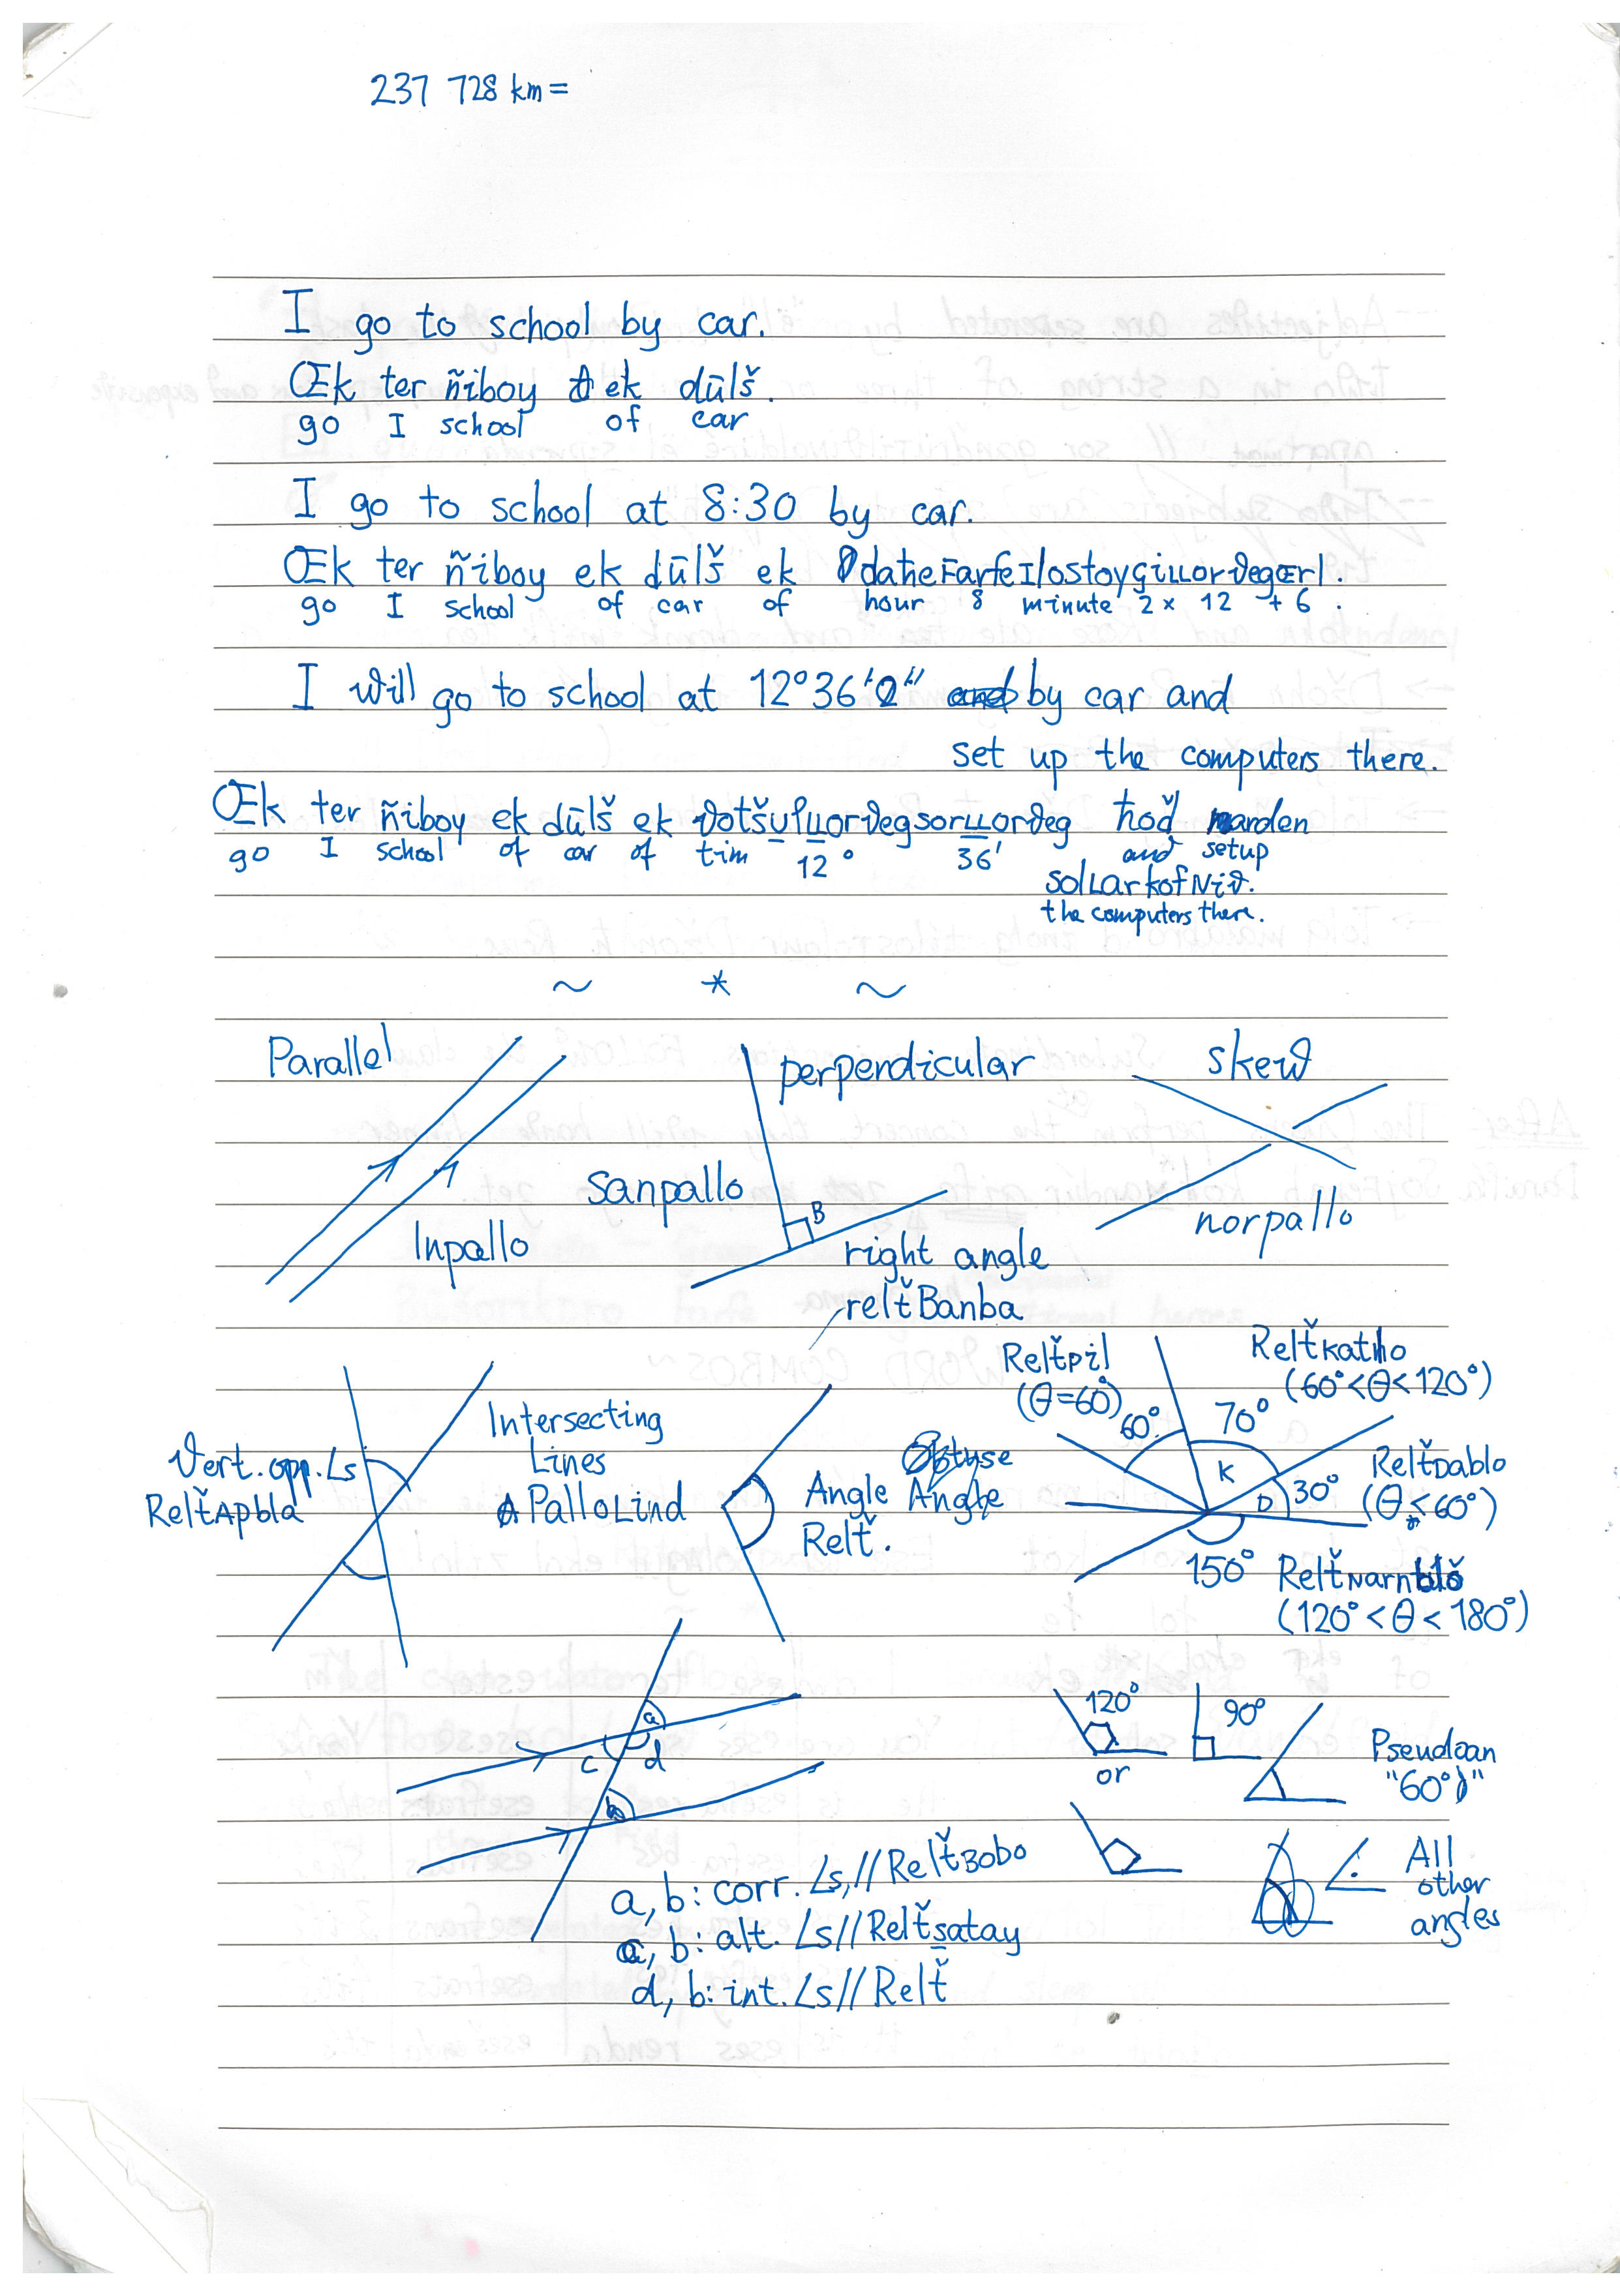 237 728 km=
I go to school by car.
Œk ter ñiboy ek dūlš.
go I school of car
I go to school at 8:30 by car.
Œk ter ñiboy ek dūlš ek
go I school of car of hour 8 minute 2x 12 + 6.
I will go to school at 12°36' by car and
set up the computers there.
Œk ter ñiboy ek dūlš ek
go I school of car of tim 12° 36' and setup
the computers there.
~ * ~
Parallel
perpendicular
skew
Sanpallo
Inpallo
B
norpallo
right angle
relťBanba
Relťpil
(θ=60°)
60°
Relťkatho
(60°<θ<120°)
70°
Intersecting
Lines
PalloLind
Vert. opp. ∠s
RelťApbla
Angle
Relť.
K
D
30°
RelťDablo
150°
(120°<θ<180°)
a
c d
b
120°
or
90°
"60°"
a, b: corr. ∠s,// RelťBobo
c, b: alt. ∠s// Relťsatay
d, b: int. ∠s// Relť
All
other
angles